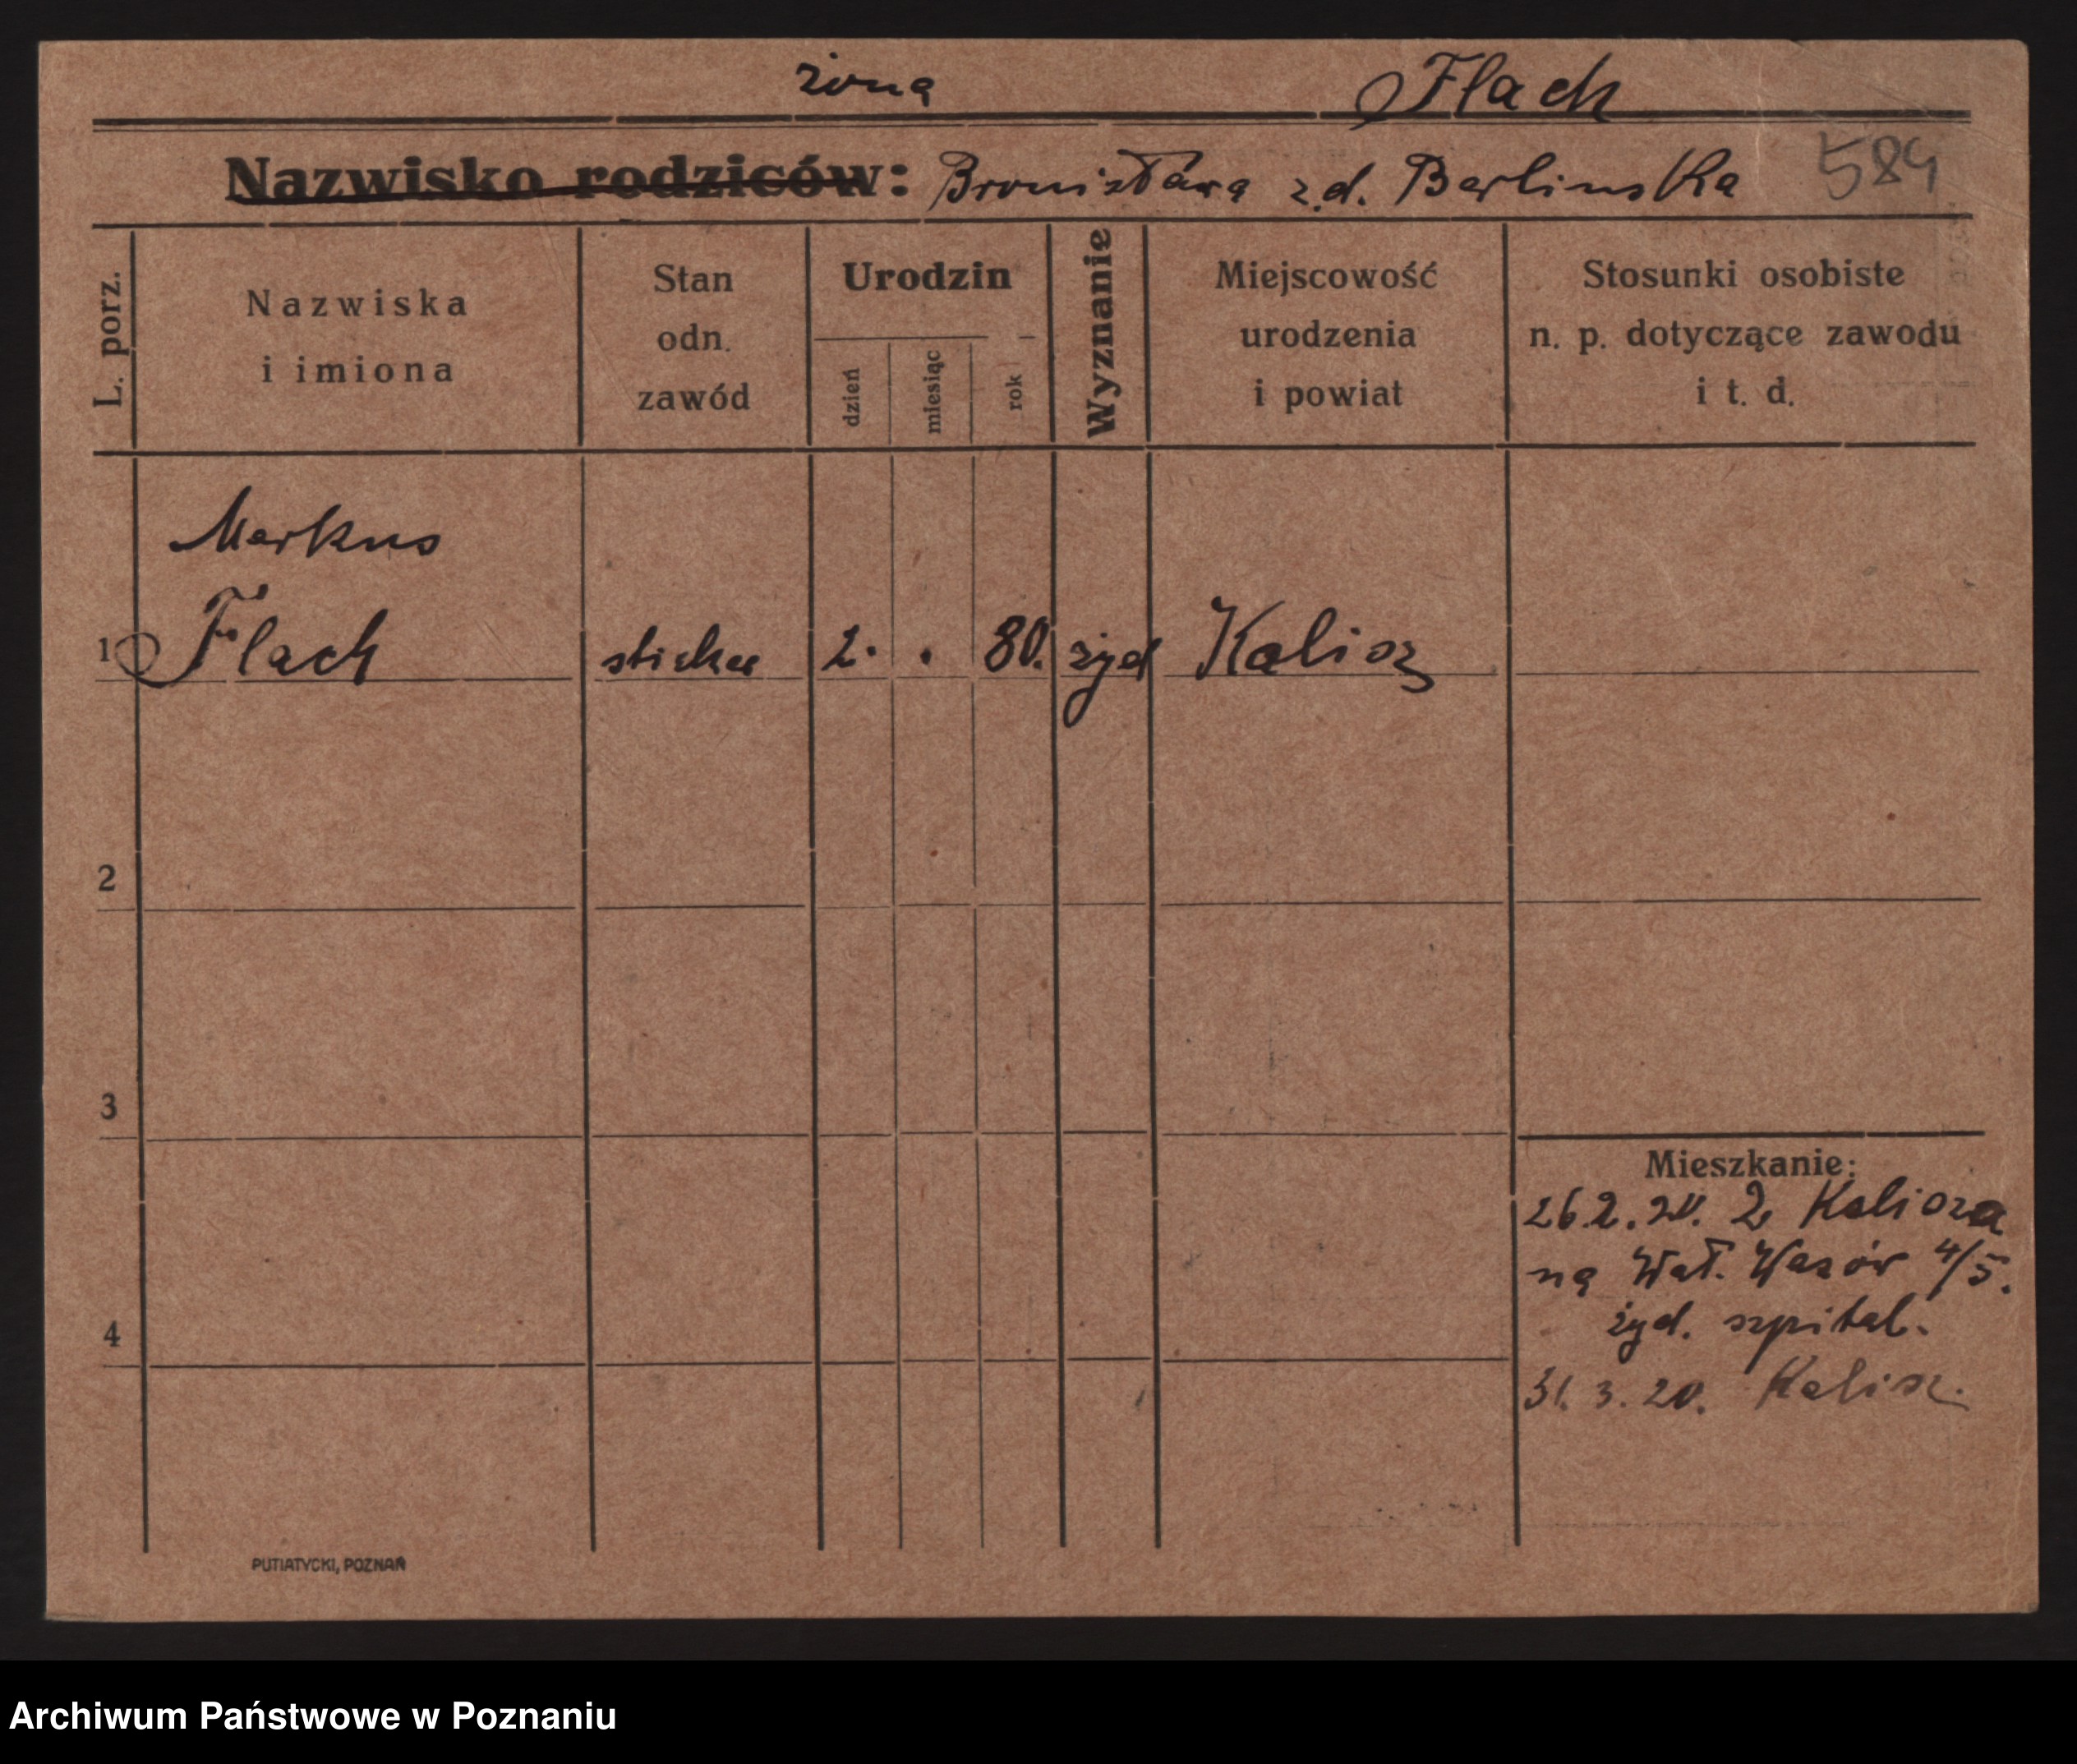 żona Flach
Nazwisko rodziców: Bronisława z.d. Berlinska 584
L. porz.
Nazwiska
i imiona
Stan
odn.
zawód
Urodzin
dzień
miesiąc
rok
Wyznanie
Miejscowość
urodzenia
i powiat
Stosunki osobiste
n. p. dotyczące zawodu
i t. d.
Markus
1 Flach 2. . 80. żyd Kalisz
2
3
4
Mieszkanie:
26.2.20. z Kalisza
na Wał. Wazów 4/5.
żyd. szpital.
31.3.20. Kalisz.
PUTIATYCKI, POZNAŃ
Archiwum Państwowe w Poznaniu